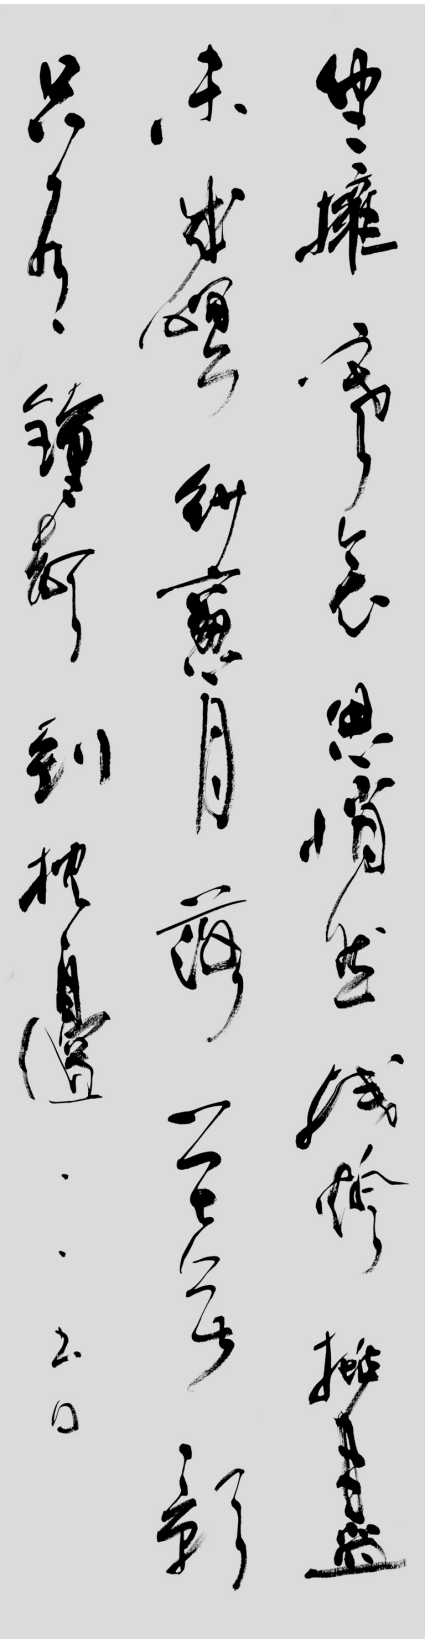 坐擁寒衾思悄然殘燈挑盡
未成眠紗窗月落花无影
只有鐘聲到枕邊